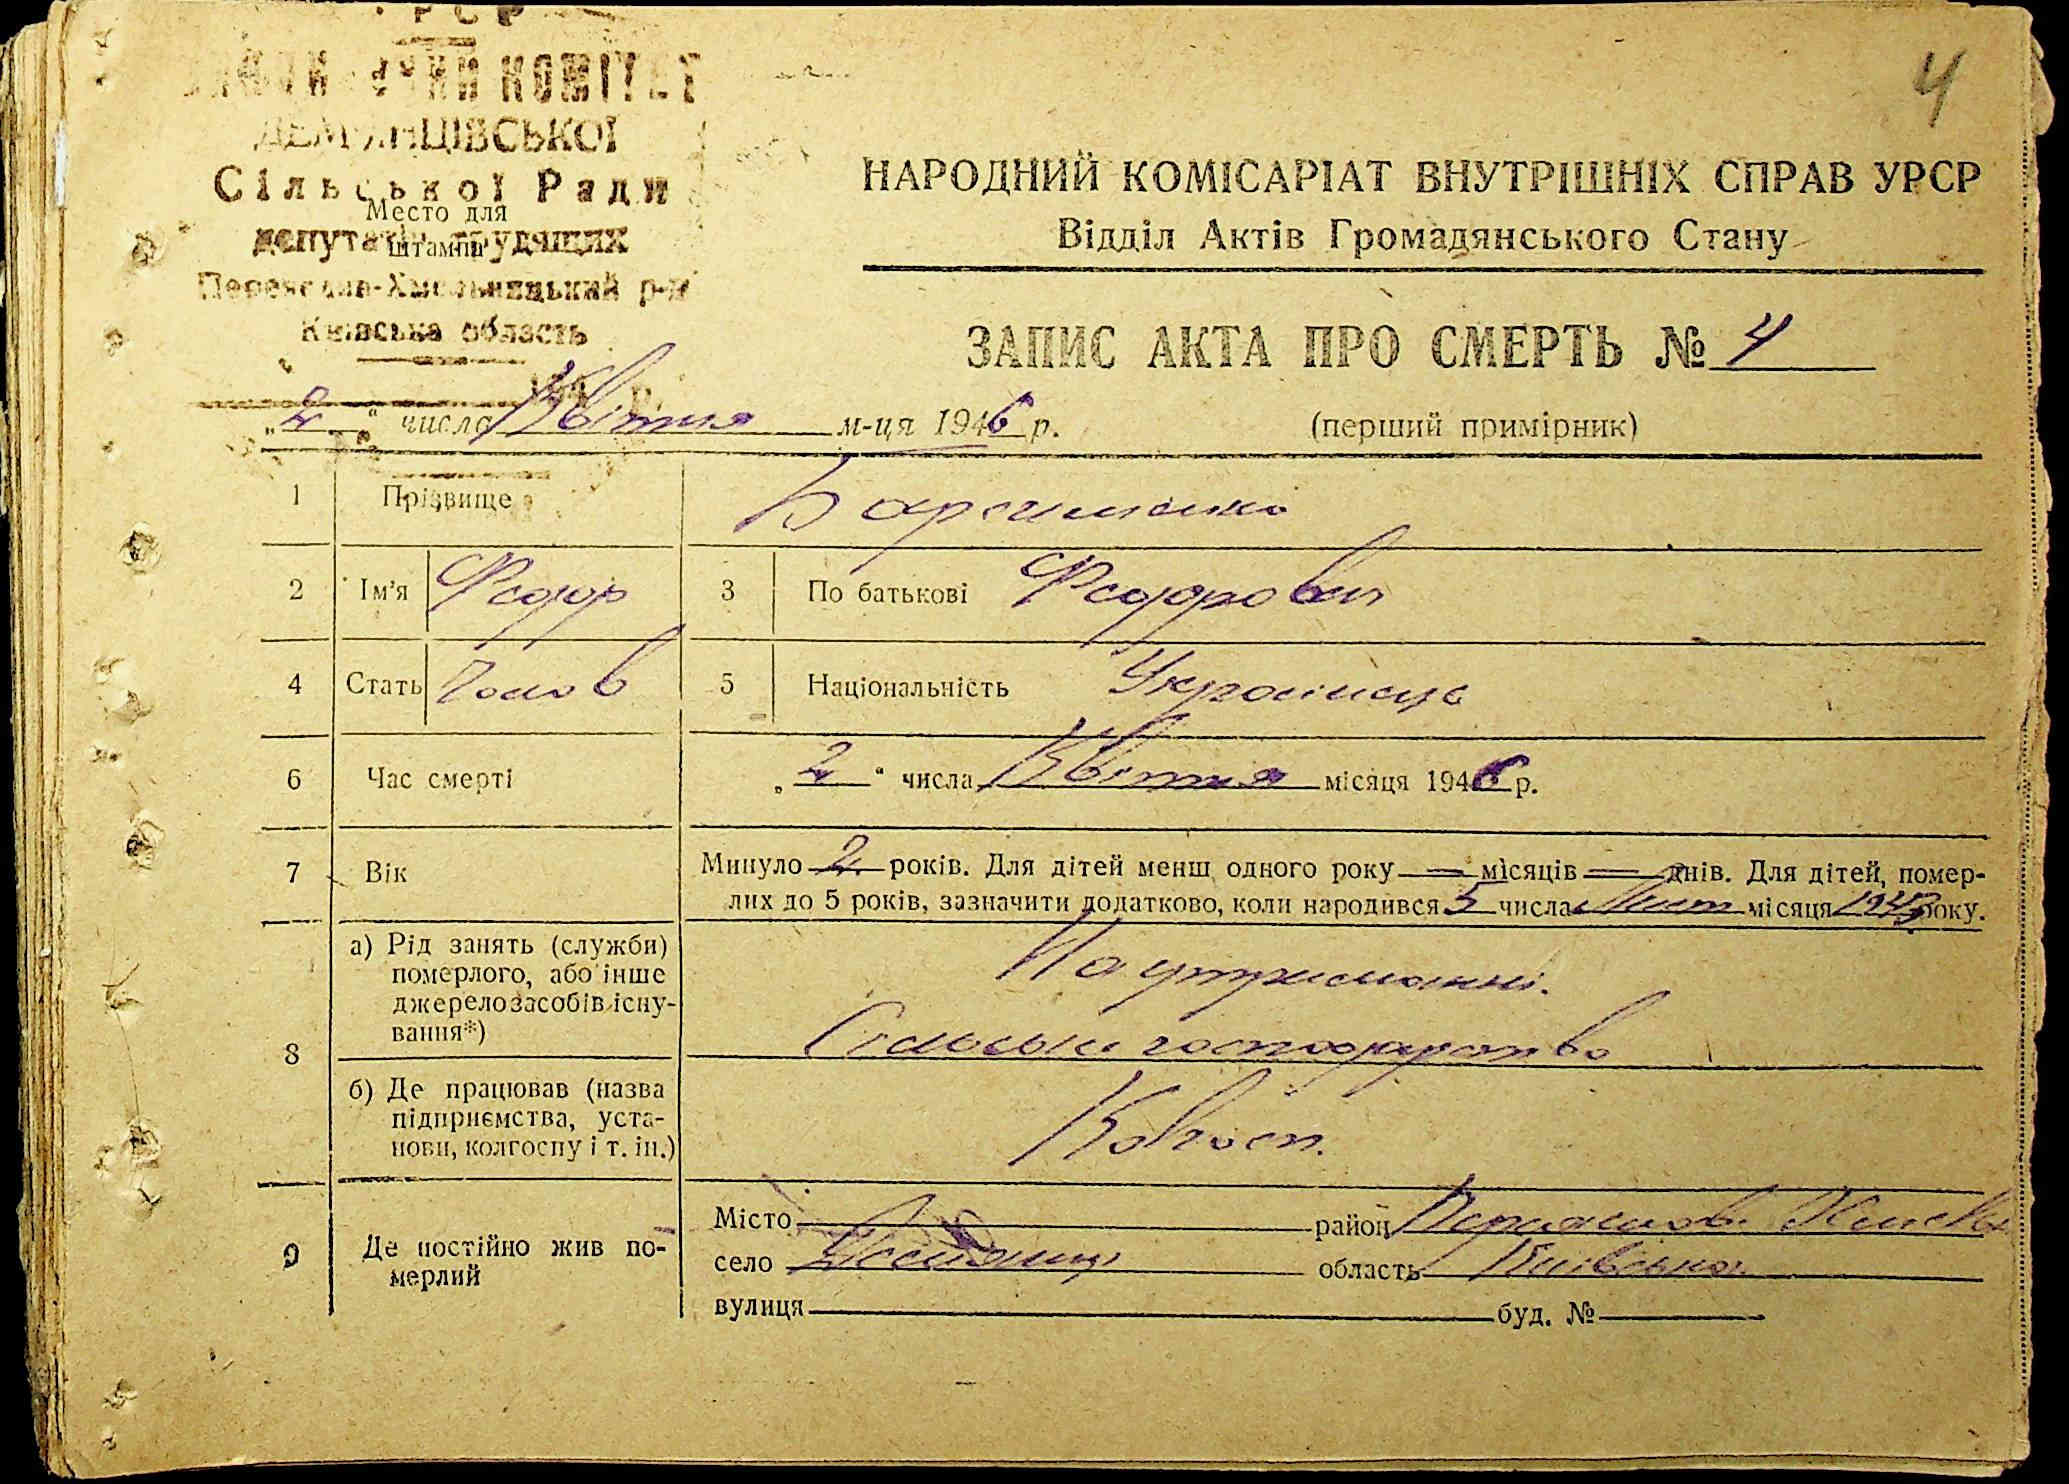 УРСР
4
ВИКОНАВЧИЙ КОМІТЕТ
ДЕМ'ЯНЦІВСЬКОЇ
Сільської Ради
Место для
депутатів трудящих
штампа
Переяслав-Хмельницький р-н
Київська область
НАРОДНИЙ КОМІСАРІАТ ВНУТРІШНІХ СПРАВ УРСР
Відділ Актів Громадянського Стану
ЗАПИС АКТА ПРО СМЕРТЬ № 4
„2“ числа Квітня м-ця 1946 р.
(перший примірник)
1 Прізвище
2 Ім'я Федор 3 По батькові Федорович
4 Стать Чолов 5 Національність Українець
6 Час смерті „2“ числа Квітня місяця 1946 р.
7 Вік Минуло 2 років. Для дітей менш одного року — місяців — днів. Для дітей, помер-
лих до 5 років, зазначити додатково, коли народився 5 числа Лист місяця 1943 року.
8 а) Рід занять (служби) померлого, або інше джерело засобів існу-вання*) На утриманні.
Сільське господарство
б) Де працював (назва підприємства, уста-нови, колгоспу і т. ін.) Колгосп.
9 Де постійно жив по-мерлий
Місто — район Переяслав. Хмель
село область Київська
вулиця — буд. № —